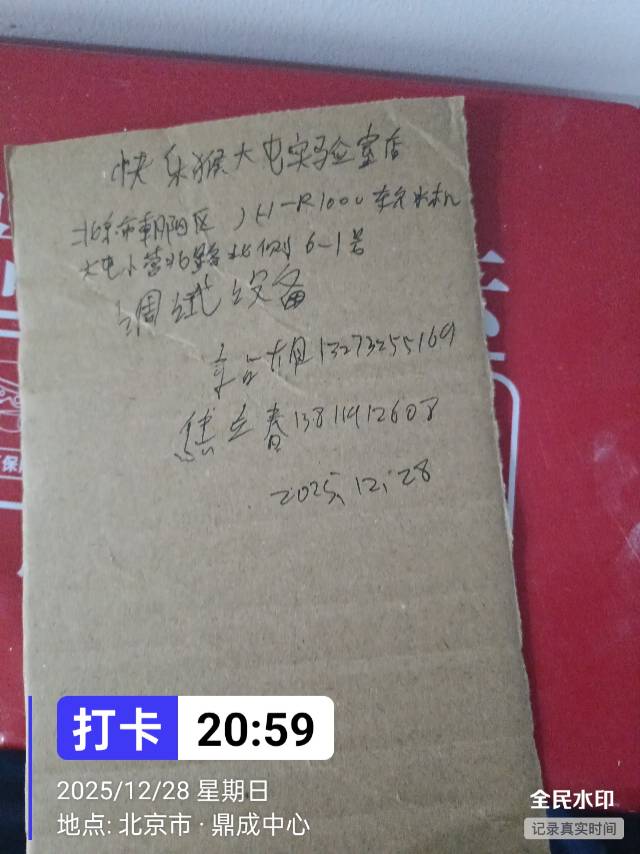 快乐猴大屯实验室店
北京市朝阳区 JH-R1000
大屯小营北路北侧6-1号
调试设备
13273255169
焦立春13811912608
2025.12.28
打卡 20:59
2025/12/28 星期日
地点: 北京市·鼎成中心
全民水印
记录真实时间